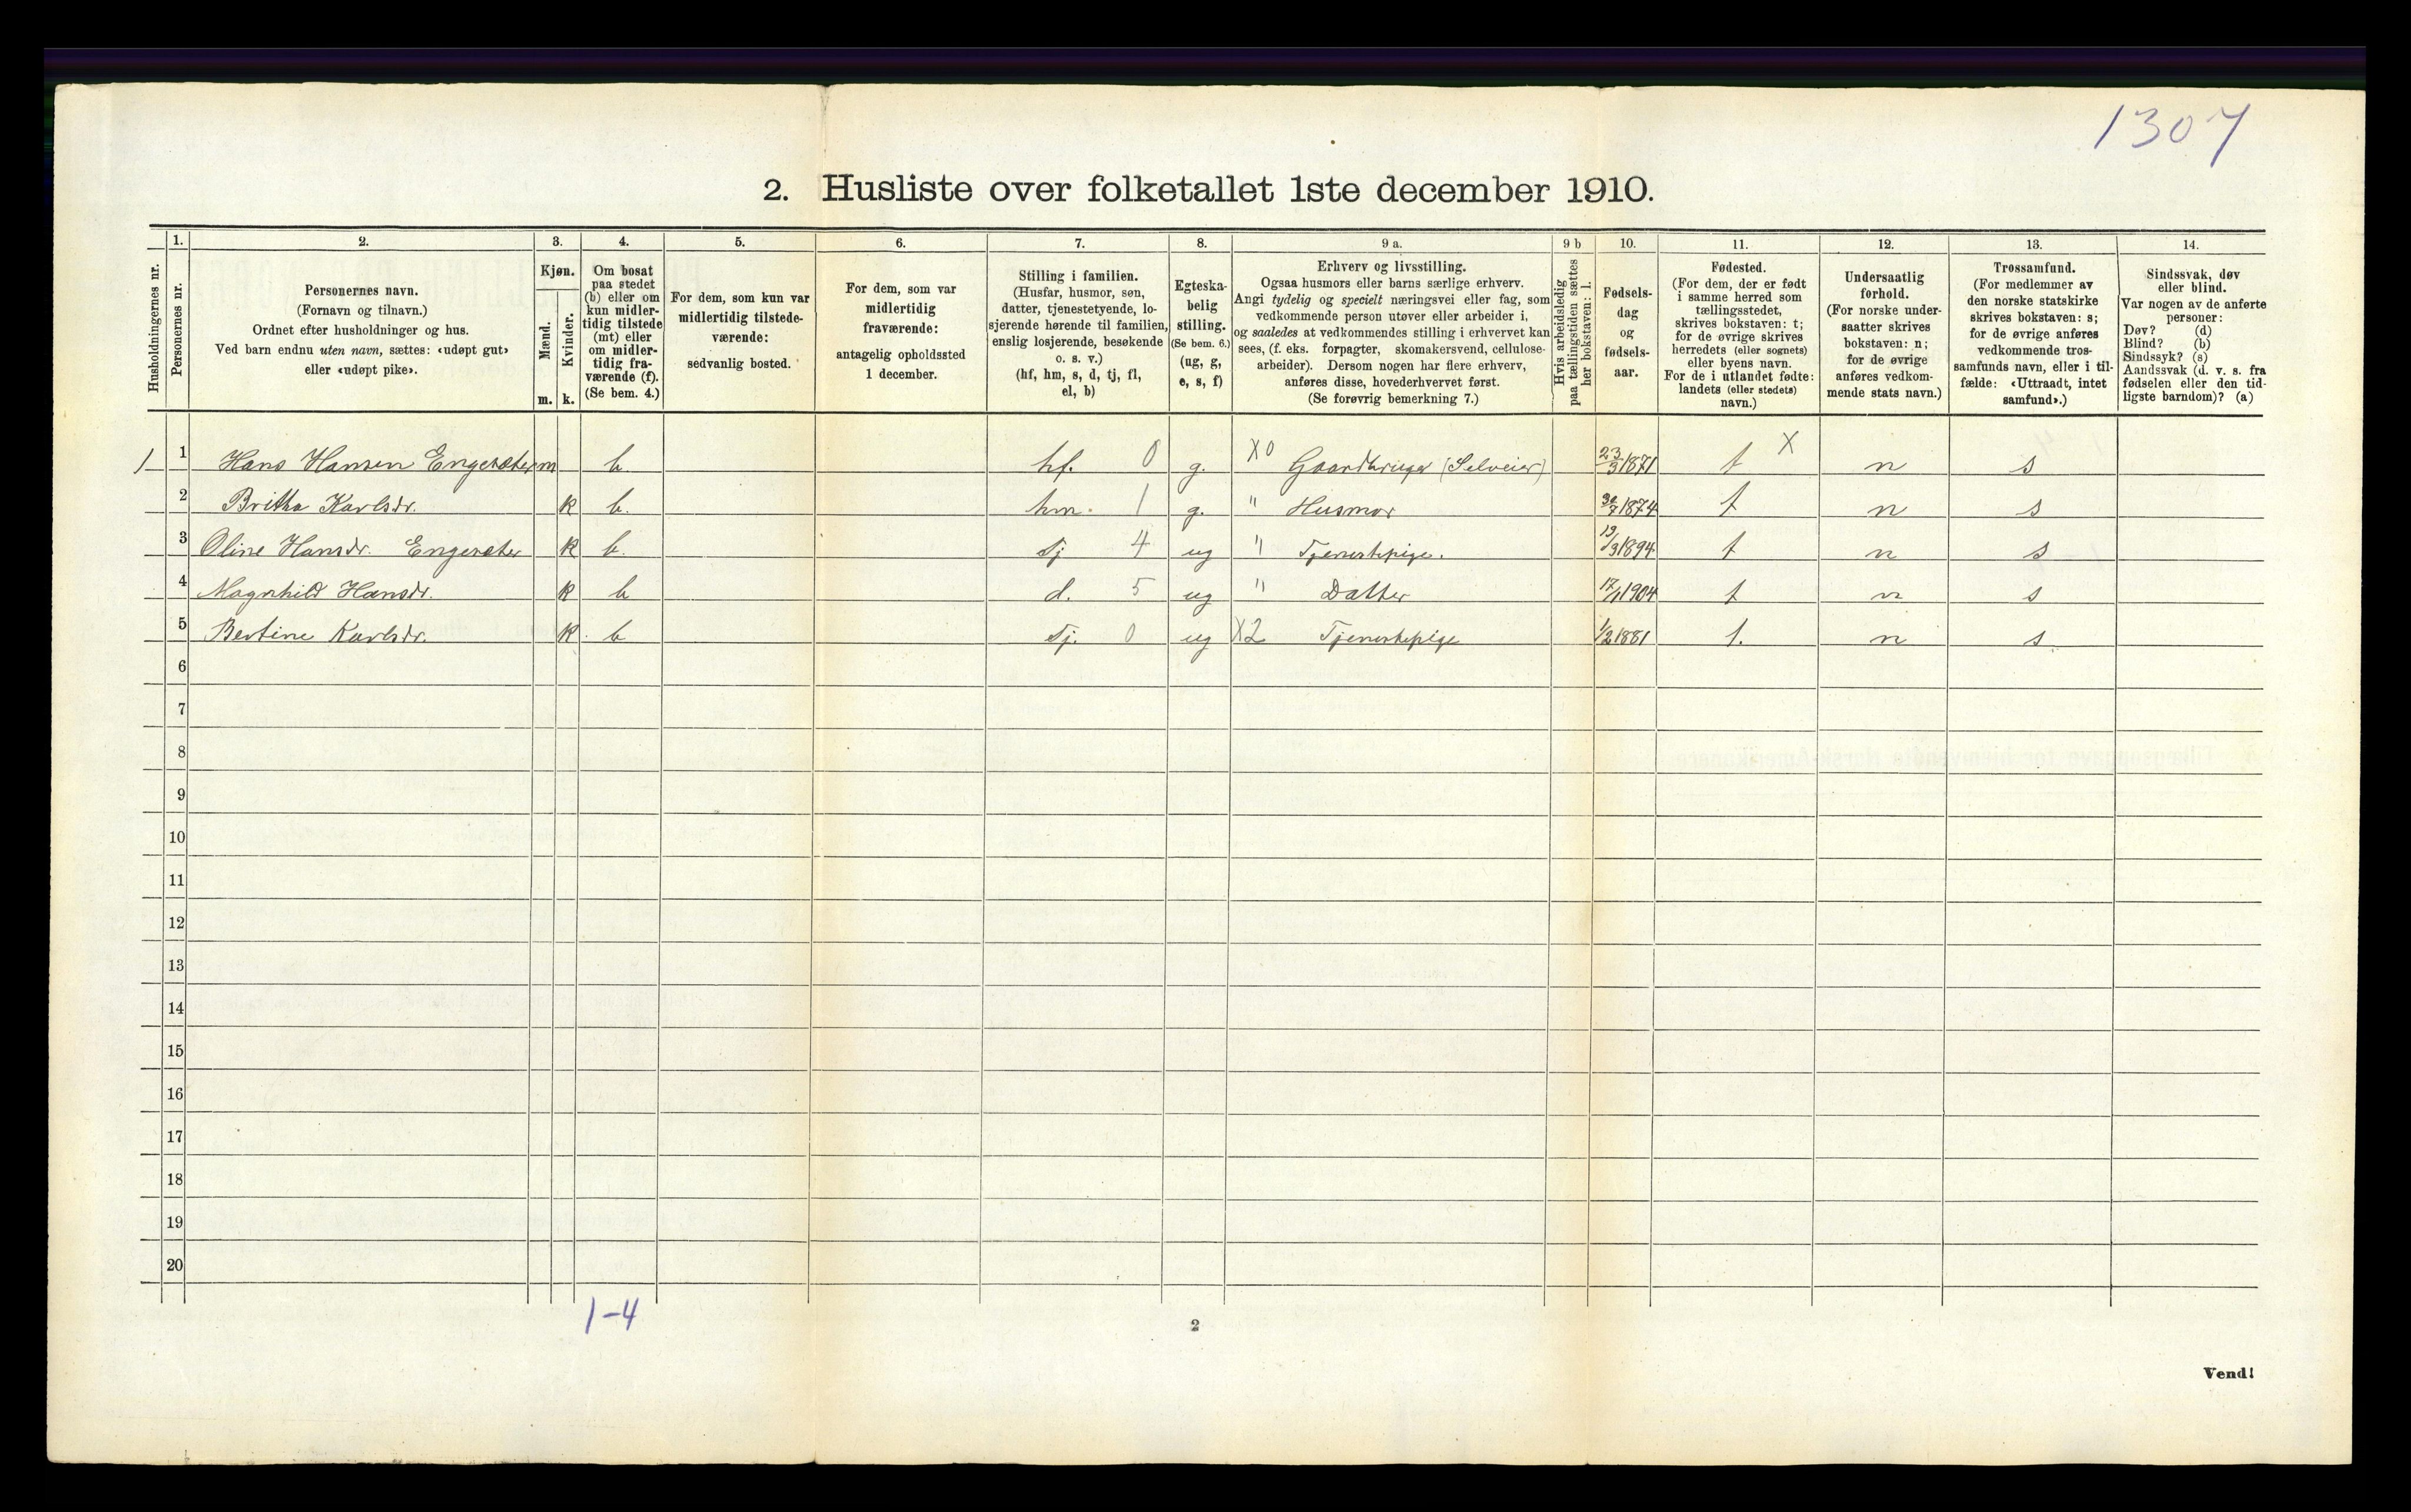 1307
2. Husliste over folketallet 1ste december 1910.
Husholdningernes nr.
1.
Personernes nr.
2.
Personernes navn.
(Fornavn og tilnavn.)
Ordnet efter husholdninger og hus.
Ved barn endnu uten navn, sættes: «udøpt gut»
eller «udøpt pike».
3.
Kjøn.
Mænd.
Kvinder.
m. k.
4.
Om bosat
paa stedet
(b) eller om
kun midler-
tidig tilstede
(mt) eller
om midler-
tidig fra-
værende (f).
(Se bem. 4.)
5.
For dem, som kun var
midlertidig tilstede-
værende:
sedvanlig bosted.
6.
For dem, som var
midlertidig
fraværende:
antagelig opholdssted
1 december.
7.
Stilling i familien.
(Husfar, husmor, søn,
datter, tjenestetyende, lo-
sjerende hørende til familien,
enslig losjerende, besøkende
o. s. v.)
(hf, hm, s, d, tj, fl,
el, b)
8.
Egteska-
belig
stilling.
(Se bem. 6.)
(ug, g,
e, s, f)
9 a.
Erhverv og livsstilling.
Ogsaa husmors eller barns særlige erhverv.
Angi tydelig og specielt næringsvei eller fag, som
vedkommende person utøver eller arbeider i,
og saaledes at vedkommendes stilling i erhvervet kan
sees, (f. eks. forpagter, skomakersvend, cellulose-
arbeider). Dersom nogen har flere erhverv,
anføres disse, hovederhvervet først.
(Se forøvrig bemerkning 7.)
9 b
Hvis arbeidsledig
paa tællingstiden sættes
her bokstaven: l.
10.
Fødsels-
dag
og
fødsels-
aar.
11.
Fødested.
(For dem, der er født
i samme herred som
tællingsstedet,
skrives bokstaven: t;
for de øvrige skrives
herredets (eller sognets)
eller byens navn.
For de i utlandet fødte:
landets (eller stedets)
navn.)
12.
Undersaatlig
forhold.
(For norske under-
saatter skrives
bokstaven: n;
for de øvrige
anføres vedkom-
mende stats navn.)
13.
Trossamfund.
(For medlemmer av
den norske statskirke
skrives bokstaven: s;
for de øvrige anføres
vedkommende tros-
samfunds navn, eller i til-
fælde: «Uttraadt, intet
samfund».)
14.
Sindssvak, døv
eller blind.
Var nogen av de anførte
personer:
Døv? (d)
Blind? (b)
Sindssyk? (s)
Aandssvak (d. v. s. fra
fødselen eller den tid-
ligste barndom)? (a)
1 1 Hans Hansen Engesæter m b. hf. 0 g. X0 Gaardbruger (Selveier) 23/3 1871 t X n s
2 Britha Karlsdr. k b. hm. 1 g. " Husmor 30/7 1874 t n s
3 Oline Hansdr. Engesæter k b. tj 4 ug " Tjenestepige. 19/3 1894 t n s
4 Magnhild Hansdr. k b d. 5 ug " Datter 17/1 1904 t n s
5 Bertine Karlsdr. k b tj. 0 ug X2 Tjenestepige 1/2 1881 t. n s
6
7
8
9
10
11
12
13
14
15
16
17
18
19
20
1-4
2
Vend!